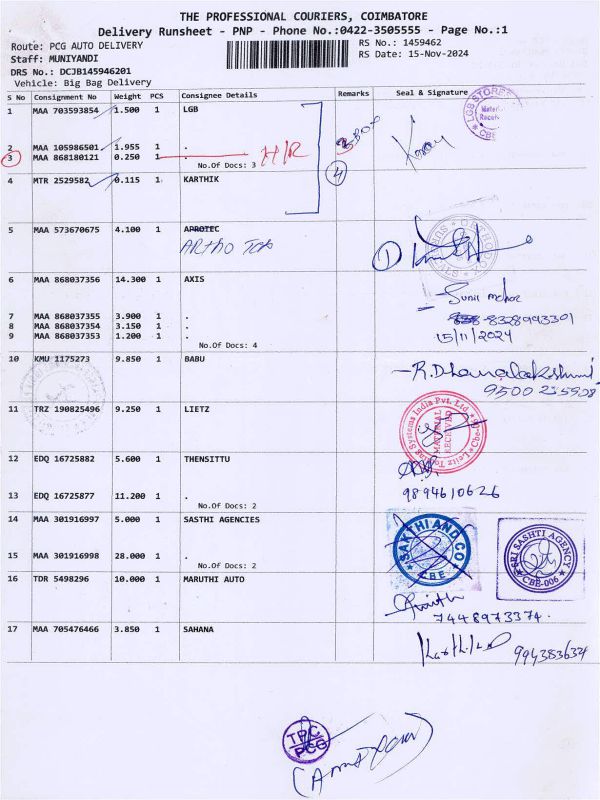 THE PROFESSIONAL COURIERS, COIMBATORE
Delivery Runsheet - PNP - Phone No.:0422-3505555 - Page No.:1
Route: PCG AUTO DELIVERY
RS No.: 1459462
Staff: MUNIYANDI
RS Date: 15-Nov-2024
DRS No.: DCJB145946201
Vehicle: Big Bag Delivery
S No Consignment No Weight PCS Consignee Details Remarks Seal & Signature
1 MAA 703593854 1.500 1 LGB
LGB STORES
CBE
2 MAA 105986501 1.955 1 .
3 MAA 868180121 0.250 1 H/R
No.Of Docs: 3
4
4 MTR 2529582 0.115 1 KARTHIK
5 MAA 573670675 4.100 1 APROTEC
6 MAA 868037356 14.300 1 AXIS
7 MAA 868037355 3.900 1 .
8 MAA 868037354 3.150 1 .
8328993301
9 MAA 868037353 1.200 1 .
15/11/2024
No.Of Docs: 4
10 KMU 1175273 9.850 1 BABU
R. Dhanalakshmi
11 TRZ 190825496 9.250 1 LIETZ
Leitz Tooling Systems India Pvt. Ltd
MATERIAL
RECEIVED
12 EDQ 16725882 5.600 1 THENSITTU
13 EDQ 16725877 11.200 1 .
9894610626
No.Of Docs: 2
14 MAA 301916997 5.000 1 SASTHI AGENCIES
SAKTHI AND CO
CBE
SRI SASHTI AGENCY
CBE-006
15 MAA 301916998 28.000 1 .
No.Of Docs: 2
16 TDR 5498296 10.000 1 MARUTHI AUTO
7448973374.
17 MAA 705476466 3.850 1 SAHANA
TPC
PCG